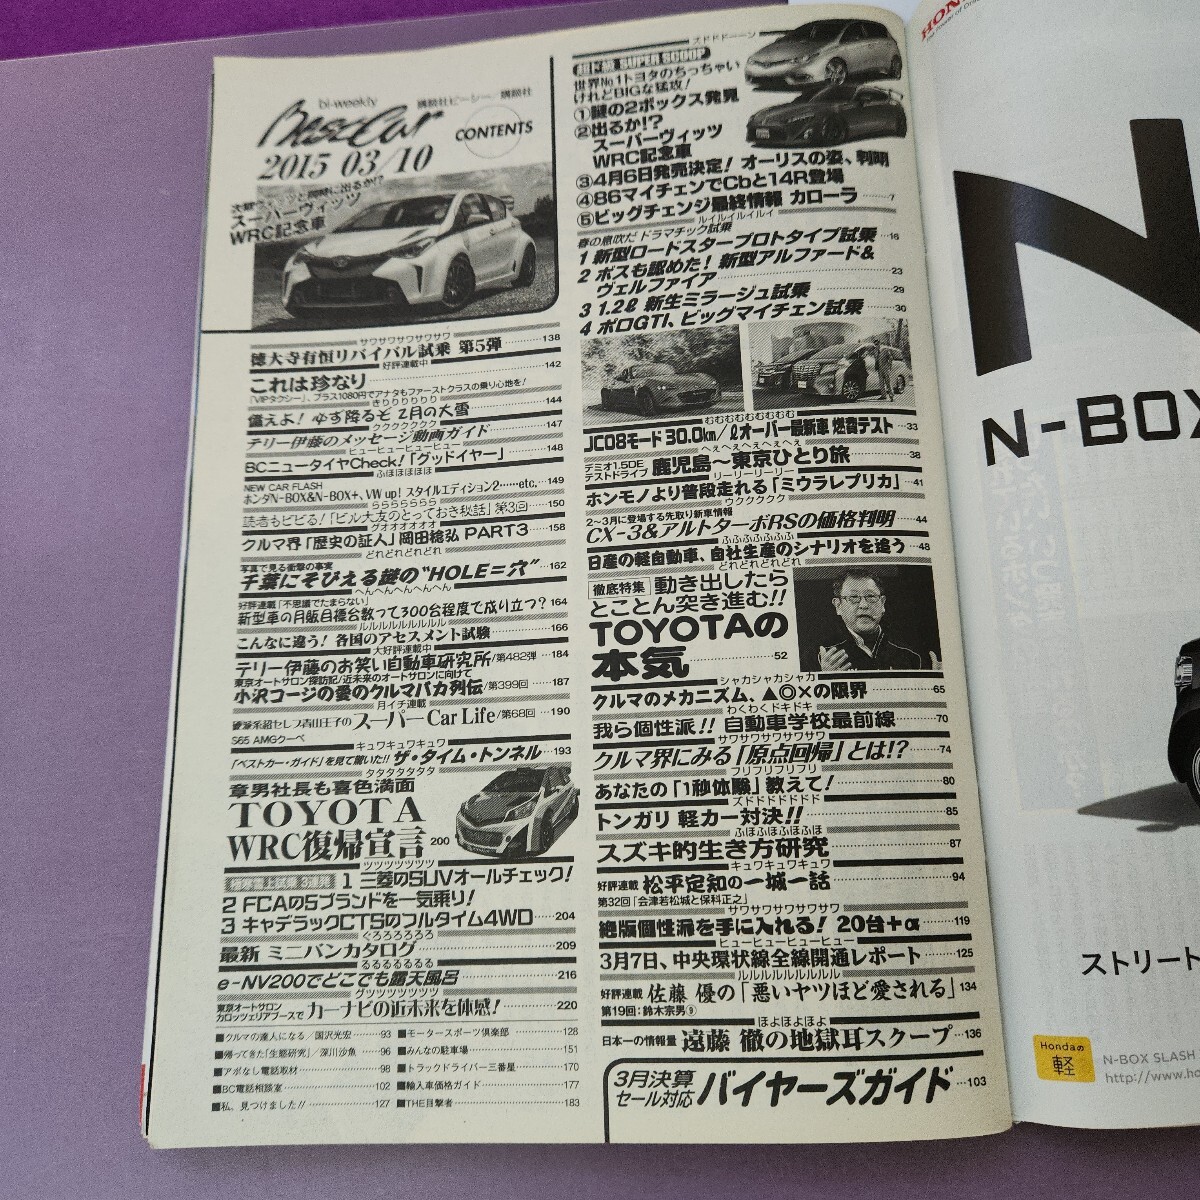 bi-weekly
講談社ビーシー/講談社
BestCar
CONTENTS
2015 03/10
次期ヴィッツと同時に出るか!?
スーパーヴィッツ
WRC記念車
サワサワサワサワサワ
徳大寺有恒リバイバル試乗 第5弾 138
好評連載中
これは珍なり 142
「VIPタクシー」、プラス1080円でアナタもファーストクラスの乗り心地を!
きりりりりりり
備えよ! 必ず降るぞ 2月の大雪 144
クククククククク
テリー伊藤のメッセージ動画ガイド 147
ヒューヒューヒューヒュー
BCニュータイヤCheck!「グッドイヤー」 148
ふほほほほほ
NEW CAR FLASH
ホンダN-BOX&N-BOX+、VW up! スタイルエディション2……etc. 149
らららららららら
読者もビビる!「ビル大友のとっておき秘話」第3回 150
グオオオオオオ
クルマ界「歴史の証人」岡田稔弘 PART3 158
どれどれどれどれ
写真で見る衝撃の事実
千葉にそびえる謎の"HOLE=穴" 162
へんへんへんへんへん
好評連載「不思議でたまらない」
新型車の月販目標台数って300台程度で成り立つ? 164
ルルルルルルルルル
こんなに違う! 各国のアセスメント試験 166
大好評連載中
テリー伊藤のお笑い自動車研究所/第482弾 184
東京オートサロン探訪記/近未来のオートサロンに向けて
小沢コージの愛のクルマバカ列伝/第399回 187
月イチ連載
音羽系超セレブ青山王子の スーパーCar Life/第68回 190
S65 AMGクーペ
キュワキュワキュワ
「ベストカー・ガイド」を見て驚いた!! ザ・タイム・トンネル 193
タタタタタタタ
章男社長も喜色満面
TOYOTA
WRC復帰宣言 200
ツツツツツツツ
1 三菱のSUVオールチェック!
2 FCAの5ブランドを一気乗り!
3 キャデラックCTSのフルタイム4WD 204
ぐろろろろろろ
最新 ミニバンカタログ 209
るるるるるるる
e-NV200でどこでも露天風呂 216
グツツツツツツツ
東京オートサロン
カロッツェリアブースで カーナビの近未来を体感! 220
■クルマの達人になる/国沢光宏 93
■帰ってきた「生態研究」/深川沙魚 96
■アポなし電話取材 98
■BC電話相談室 102
■私、見つけました!! 127
■モータースポーツ倶楽部 128
■みんなの駐車場 151
■トラックドライバー三番星 170
■輸入車価格ガイド 177
■THE目撃者 183
ズドドドーーン
超ド級 SUPER SCOOP
世界No.1トヨタのちっちゃい
けれどBIGな猛攻!
①謎の2ボックス発見
②出るか!?
スーパーヴィッツ
WRC記念車
③4月6日発売決定! オーリスの姿、判明
④86マイチェンでCbと14R登場
⑤ビッグチェンジ最終情報 カローラ 7
ルイルイルイルイ
春の息吹だ ドラマチック試乗
1 新型ロードスタープロトタイプ試乗 16
2 ボスも認めた! 新型アルファード&
ヴェルファイア 23
3 1.2ℓ 新生ミラージュ試乗 29
4 ポロGTI、ビッグマイチェン試乗 30
むむむむむむむむむ
JC08モード 30.0km/ℓオーバー最新車 燃費テスト 33
へぇへぇへぇへぇへぇ
デミオ1.5DE
テストドライブ 鹿児島〜東京ひとり旅 38
リーリーリーリー
ホンモノより普段走れる「ミウラレプリカ」 41
ウククククク
2〜3月に登場する先取り新車情報
CX-3&アルトターボRSの価格判明 44
ふふふふふふふ
日産の軽自動車、自社生産のシナリオを追う 48
どれどれどれどれ
徹底特集 動き出したら
とことん突き進む!!
TOYOTAの
本気 52
シャカシャカシャカ
クルマのメカニズム、▲◎×の限界 65
わくわくドキドキ
我ら個性派!! 自動車学校最前線 70
サワサワサワサワサワ
クルマ界にみる「原点回帰」とは!? 74
フリフリフリフリ
あなたの「1秒体験」教えて! 80
ズドドドドドド
トンガリ 軽カー対決!! 85
ふほふほふほふほ
スズキ的生き方研究 87
キュワキュワキュワ
好評連載 松平定知の一城一話 94
第32回「会津若松城と保科正之」
サワサワサワサワサワ
絶版個性派を手に入れる! 20台+α 119
ヒューヒューヒューヒュー
3月7日、中央環状線全線開通レポート 125
ルルルルルルルルル
好評連載 佐藤 優の「悪いヤツほど愛される」 134
第19回:鈴木宗男⑨
ほよほよほよ
日本一の情報量 遠藤 徹の地獄耳スクープ 136
3月決算
セール対応 バイヤーズガイド 103
HON
The Power of Dre
N
N-BOX
ストリート
Hondaの
軽
N-BOX SLASH
http://www.ho